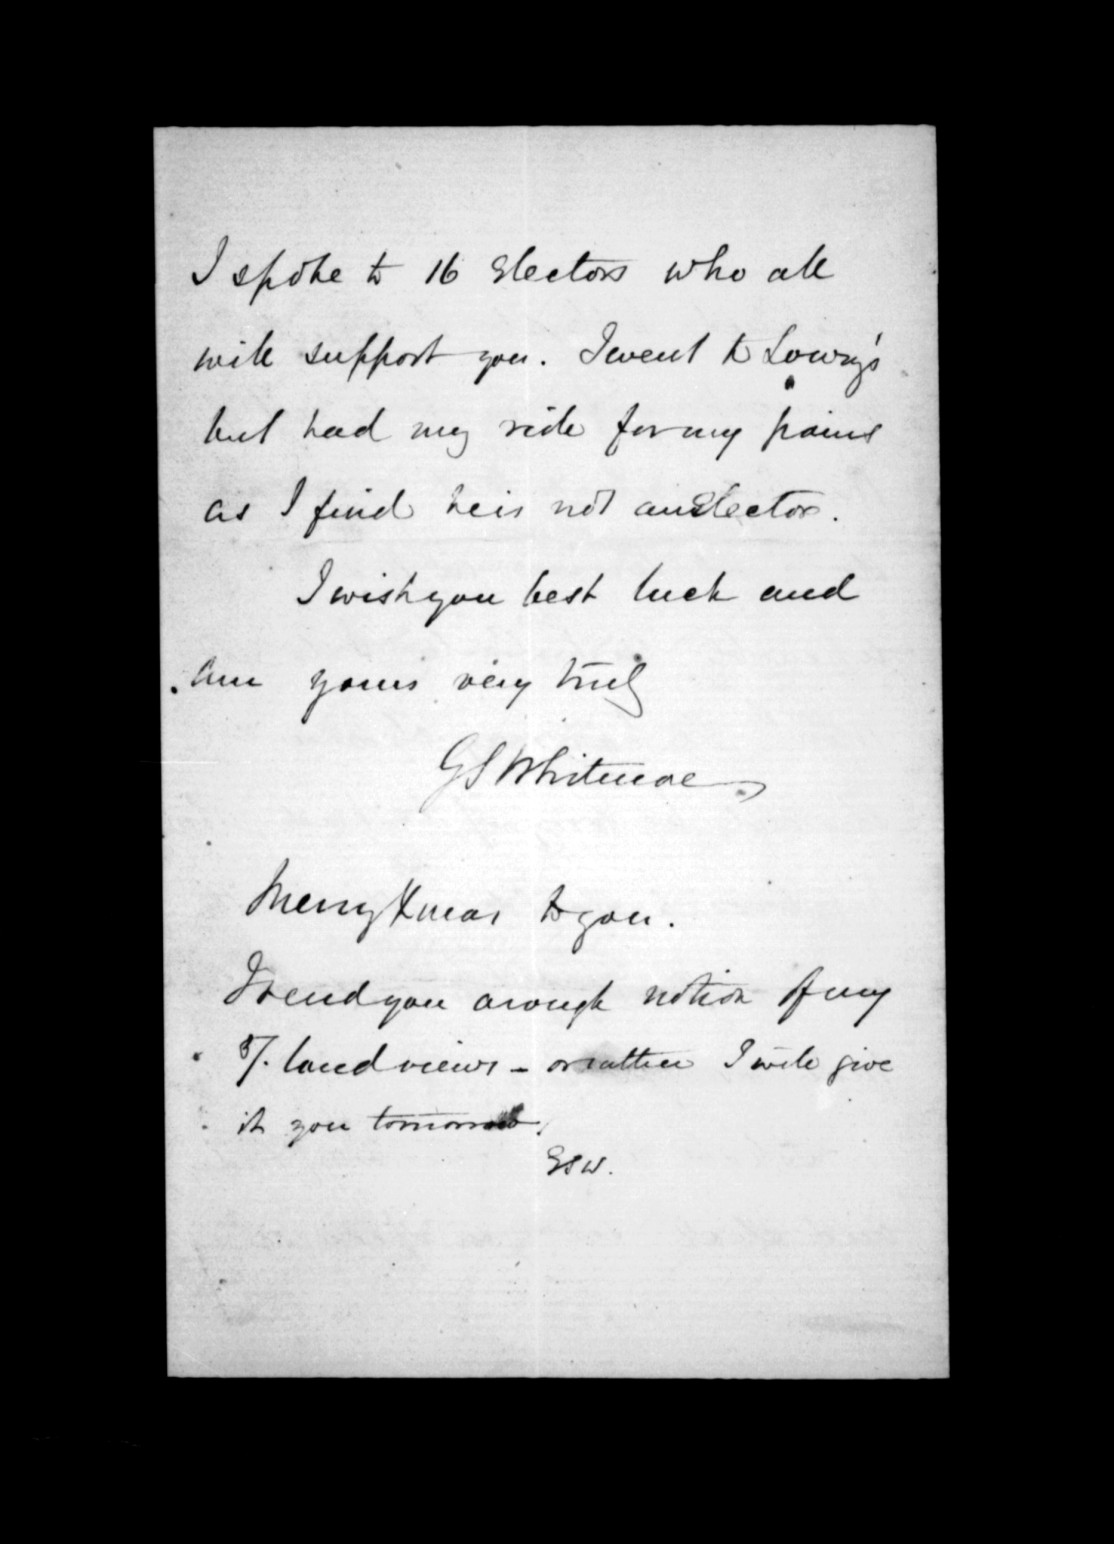 I spoke to 16 Electors who all
will support you. I went to Lowry's
but had my ride for my pains
as I find he is not an Elector.
I wish you best luck and
am yours very truly
GSWhitmore
Merry Xmas to you.
I send you a rough notion of my
land views - or rather I will give
it you tomorrow.
GSW.